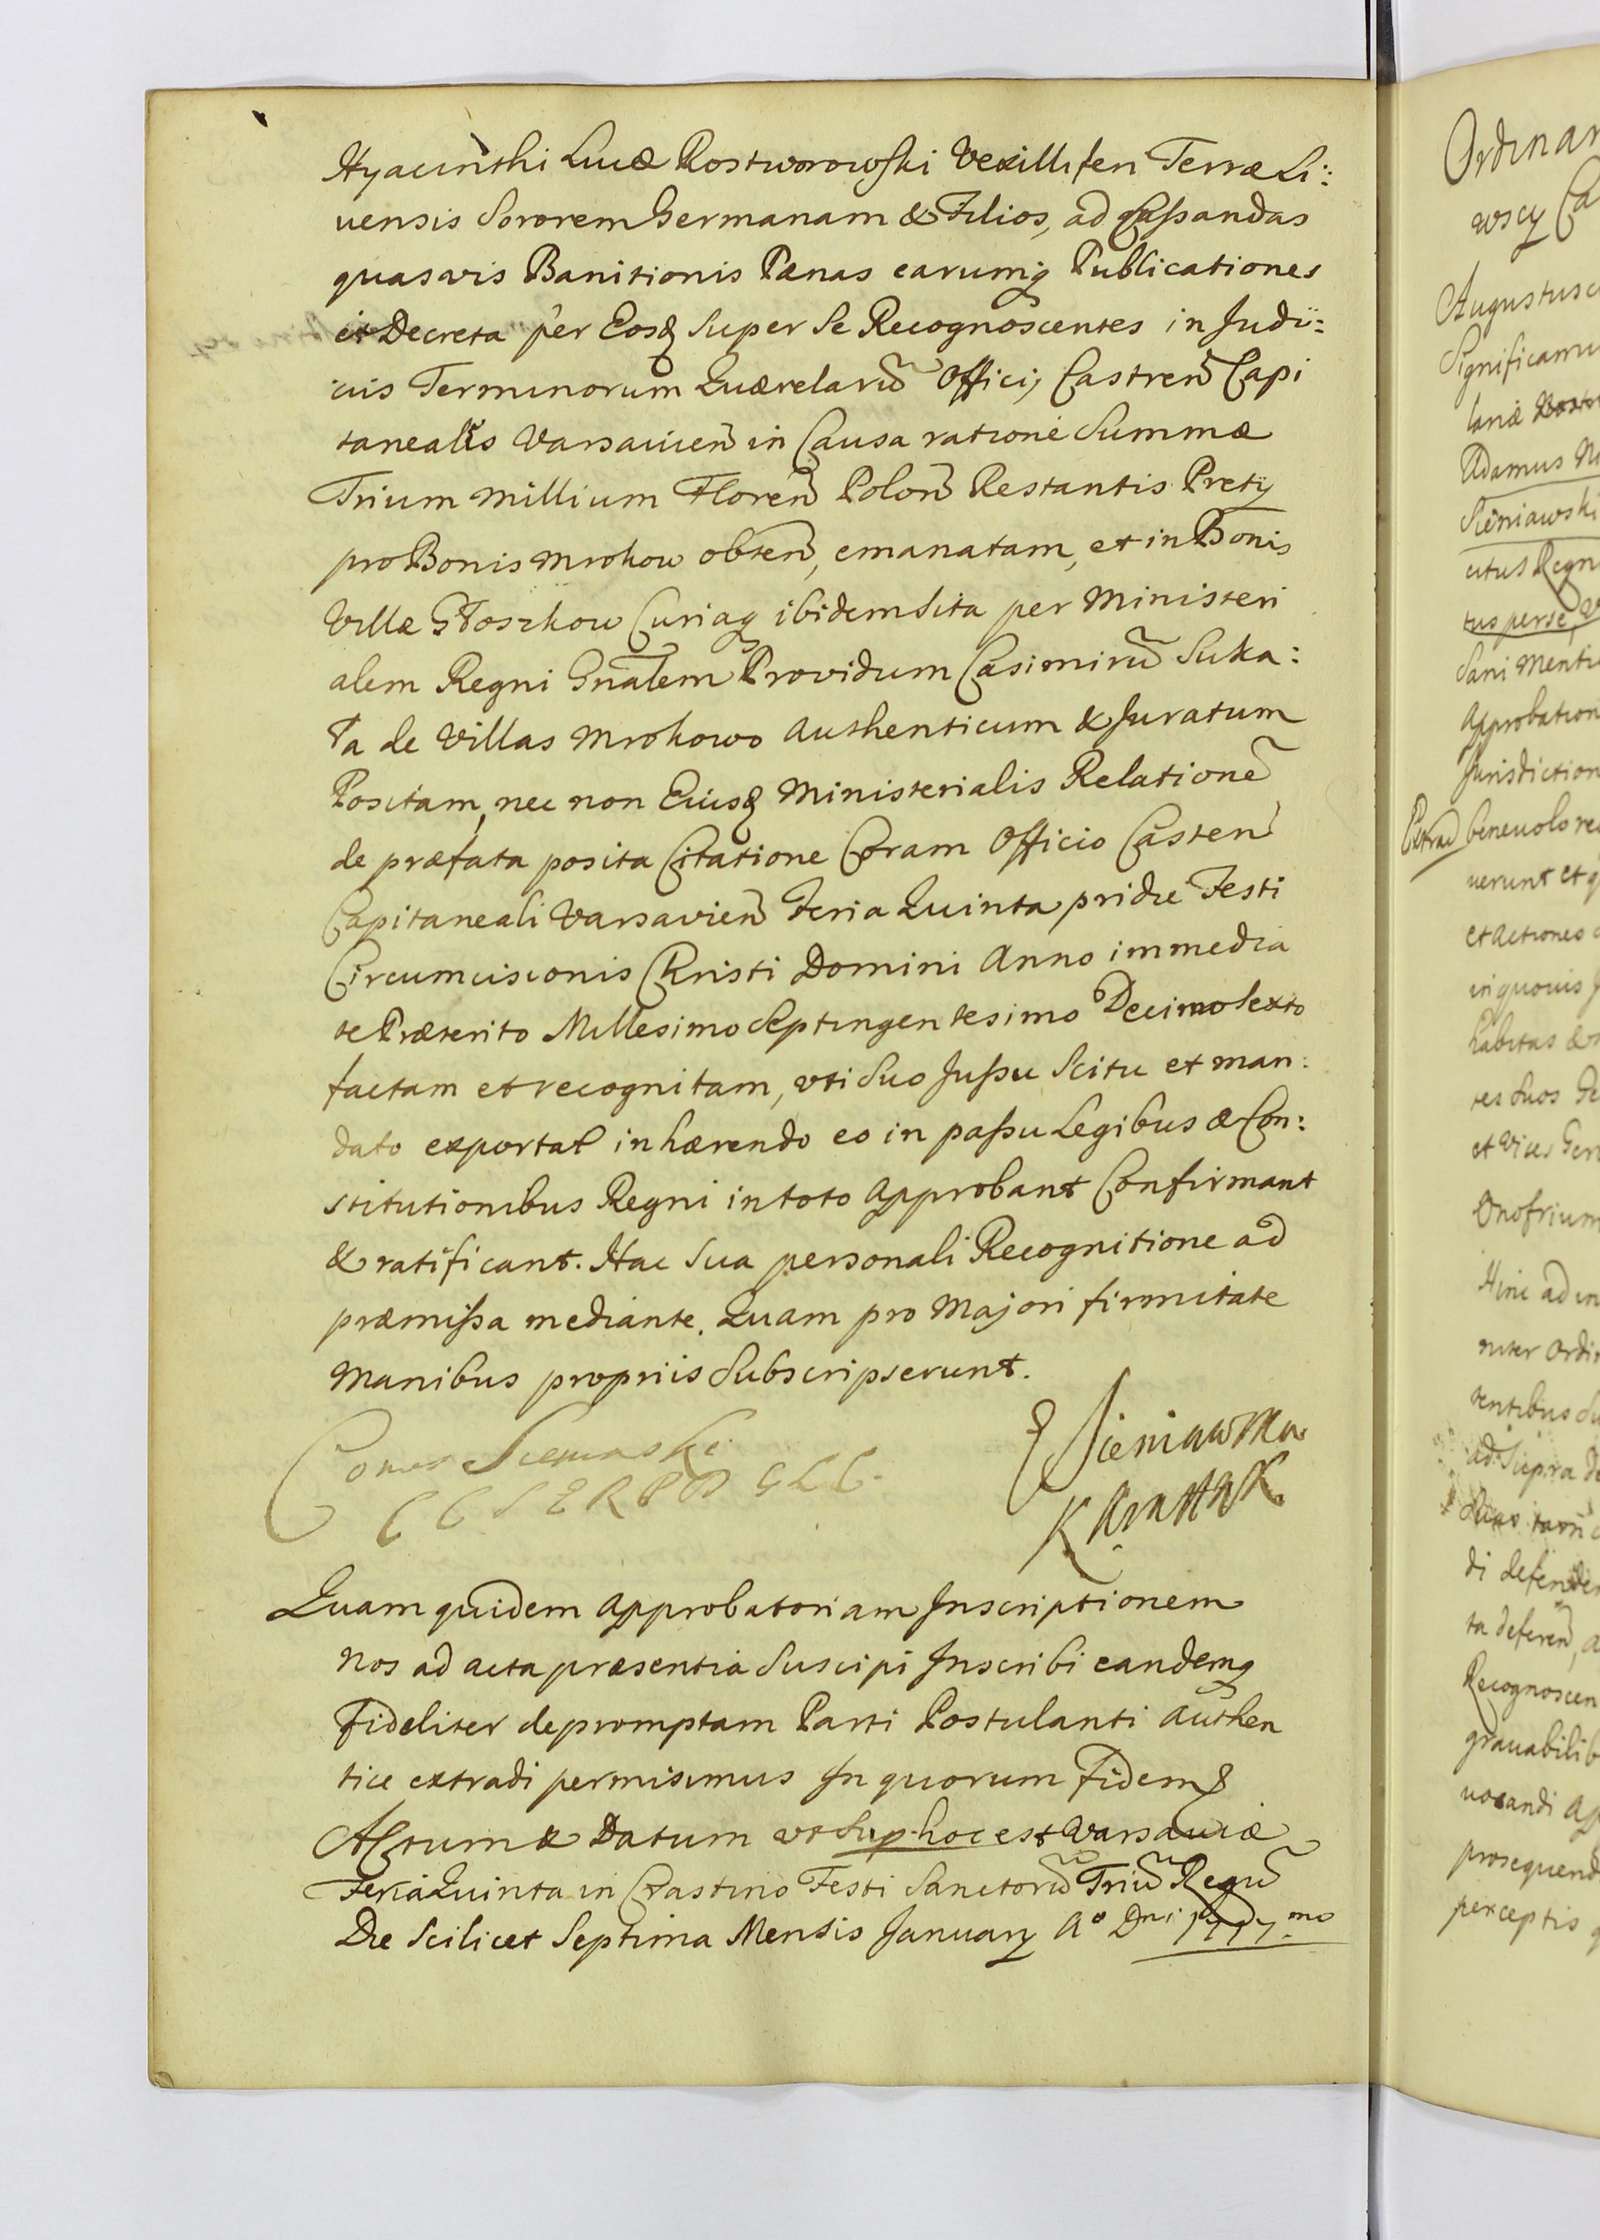 Hyacinthi Lucæ Rostworowski Vexilliferi Terræ Li:
uensis Sororem Germanam & Filios, ad Cassandas
quasvis Banitionis Pænas earumq Publicationes
et Decreta per Eosd Super Se Recognoscentes in Judi:
cijs Terminorum Quærelarū Officij Castreñ Capi
tanealis Varsavieñ in Causa ratione Summæ
Trium Millium Floreñ Poloñ Restantis Pretij
pro Bonis Mrokow obteñ, emanatam, et in Bonis
Villæ Głoszkow Curiaq ibidem sita per Ministeri
alem Regni Gnalem Providum Casimirū Suka:
ła de Villas Mrokowo Authenticum & Juratum
Positam, nec non Eiusd Ministerialis Relationē
de præfata posita Citatione Coram Officio Casteñ
Capitaneali Varsavieñ Feria Quinta pridie Festi
Circumcisionis Christi Domini Anno immedia
te Præterito Millesimo Septingentesimo Decimo Sexto
factam et recognitam, vti Suo Jussu Scitu et man:
dato exportat inhærendo eo in passu Legibus & Con:
stitutionibus Regni in toto Approbant Confirmant
& ratificant. Hac Sua personali Recognitione ad
præmissa mediante. Quam pro Majori firmitate
Manibus propriis Subscripserunt.
E Sieniawska
Quam quidem Approbatoriam Inscriptionem
Nos ad acta præsentia Suscipi Inscribi eandemq
Fideliter depromptam Parti Postulanti Authen
tice extradi permisimus In quorum Fidem &
Actum & Datum vt Sup. hoc est Varsaviæ
Feria Quinta in Crastino Festi Sanctorū Triū Regū
Die Scilicet Septima Mensis January Aº Dni 1717.mo
Ordinar
Augustus
Significamus
Adamus
Sieniawski
tus per se,
Sani Menti
Approbation
Jurisdiction
beneuolo
uerunt et
et Actiones
in quouis
habitas &
tes Suos
et Vices Ger
Onofrium
Hinc ad
niter Ordi
tentibus
di defenden
ta deferen, a
Recognoscen
grauabilib
uocandi Ap
prosequend
perceptis